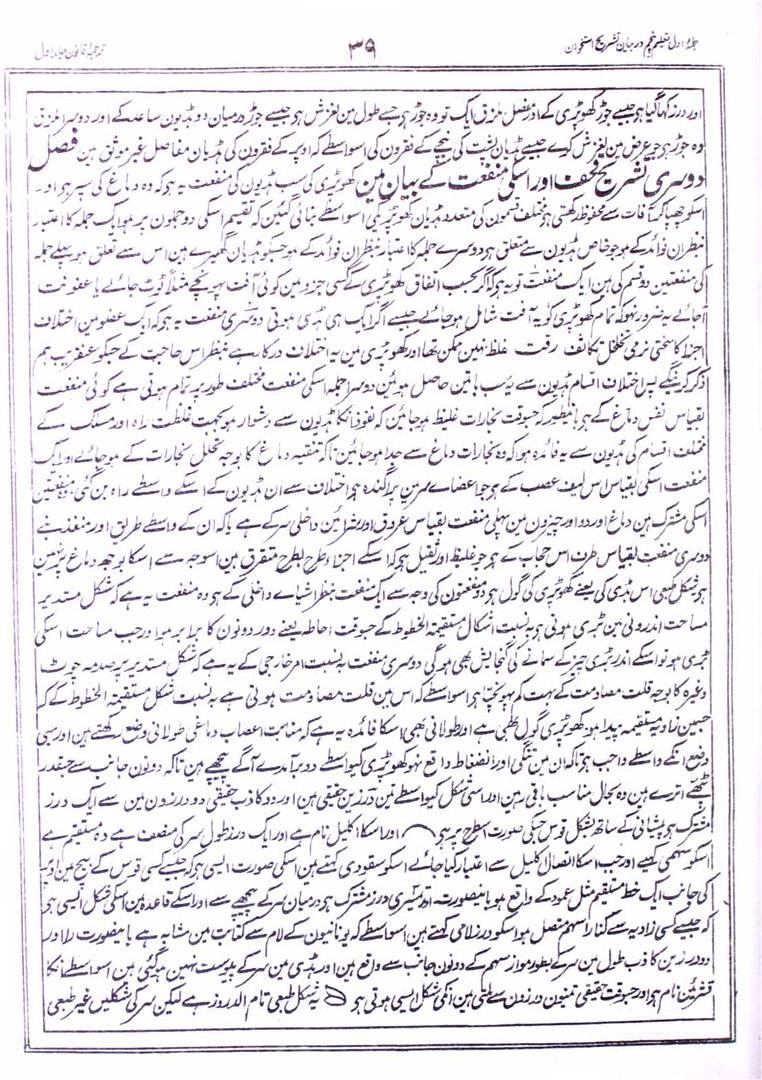 جملۂ اول تعلیم پنجم در بیان تشریح استخوان
۳۹
ترجمۂ قانون جلد اول
اور درز کہا گیا ہو جیسے جوڑ کھوپڑی کے اور مفصل ملزق ایک تو وہ جوڑ ہو جسے طول مین لغزش ہو جیسے جوڑ درمیان دو ہڈیون ساعد کے اور دوسرا ملزق
وہ جوڑ ہو جو عرض مین لغزش کرے جیسے ہڈیان پشت کی نیچے کے فقرون کی اسواسطے کہ اوپر کے فقرون کی ہڈیان مفاصل غیر موثق ہین فصل
دوسری تشریح قحف اور اسکی منفعت کے بیان مین کھوپڑی کی سب ہڈیون کی منفعت یہ ہو کہ وہ دماغ کی سپر ہو اور
اسکو چھپا کر آفات سے محفوظ رکھتی ہو مختلف قسمون کی متعدد ہڈیان کھوپڑی کی اسواسطے بنائی گئین کہ تقسیم اسکی دو جملون پر ہو ایک جملہ کا اعتبار
بنظر ان فوائد کے ہو جو خاص ہڈیون سے متعلق ہو دوسرے جملہ کا اعتبار بنظر ان فوائد کے ہو جسکو ہڈیان گھیرے ہین اس سے تعلق ہو پہلے جملہ
کی منفعتین دو قسم کی ہین ایک منفعت تو یہ ہو کہ اگر بحسب اتفاق کھوپڑی کے کسی جزو مین کوئی آفت پہونچے مثلاً ٹوٹ جائے یا عفونت
آجائے یہ ضرور نہو کہ تمام کھوپڑی کو یہ آفت شامل ہو جائے جیسے اگر ایک ہی ہڈی ہوتی دوسری منفعت یہ ہو کہ ایک عضو مین اختلاف
اجزا کا سختی نرمی تخلخل تکاثف رقت غلظ نہین ممکن تھا اور کھوپڑی مین یہ اختلاف درکار ہے بنظر اس حاجت کے جسکو عنقریب ہم
ذکر کرینگے پس اختلاف اقسام ہڈیون سے یہ سب باتین حاصل ہوئین دوسرا جملہ اسکی منفعت مختلف طور پر تمام ہوتی ہے کوئی منفعت
بقیاس نفس دماغ کے ہو بانیطور کہ جسوقت بخارات غلیظ ہو جائین کہ نفوذ انکا ہڈیون سے دشوار ہو بجہت غلظت راہ اور مسلک کے
مختلف اقسام کی ہڈیون سے یہ فائدہ ہوا کہ وہ بخارات دماغ سے جدا ہو جائین تاکہ تنقیہ دماغ کا بوجہ تحلل بخارات کے ہو جائے اور ایک
منفعت اسکی بقیاس اس لیف عصب کے ہو جو اعضاے سر مین پراگندہ ہو اختلاف سے ان ہڈیون کے اسکے واسطے راہ بن گئی دو منفعتین
اسکی مشترک ہین دماغ اور دو اور چیزون مین پہلی منفعت بقیاس عروق اور شرائین داخلی سر کے ہے تاکہ ان کے واسطے طریق اور منفذ بنے
دوسری منفعت بقیاس طرف اس حجاب کے ہو جو غلیظ اور ثقیل ہو کہ اسکے اجزا طرح بطرح متفرق ہین اسوجہ سے اسکا بوجھ دماغ پر نہین
ہو شکل طبعی اس ہڈی کی یعنے کھوپڑی کی گول ہو دو منفعتون کی وجہ سے ایک منفعت بنظر اشیاے داخلی کے ہو وہ منفعت یہ ہے کہ شکل مستدیر
مساحت اندرونی مین بڑی ہوتی ہو بہ نسبت اشکال مستقیمۃ الخطوط کے جسوقت احاطہ یعنے دور دونون کا برابر ہو اور جب مساحت اسکی
بڑی ہو تو اسکے اندر بڑی چیز کے سمانے کی گنجایش بھی ہوگی دوسری منفعت بہ نسبت امر خارجی کے یہ ہے کہ شکل مستدیر پر صدمہ چوٹ
وغیرہ کا بوجہ قلت مصادمت کے بہت کم پہونچتا ہو اسواسطے کہ اس مین قلت مصادمت ہوتی ہے بہ نسبت شکل مستقیمۃ الخطوط کے کہ
جسمین زاویہ مستقیمہ پیدا ہو کھوپڑی گول طبعی ہے اور طولانی بھی اسکا فائدہ یہ ہے کہ منابت اعصاب دماغی طولانی وضع رکھتے ہین اور یہی
وضع انکے واسطے واجب ہو تاکہ ان مین تنگی اور انضغاط واقع نہو کھوپڑی کیواسطے دو برآمدے آگے پیچھے ہین تاکہ دونون جانب سے جسقدر
پٹھے اترے ہین وہ بحال مناسب باقی رہین اور اسی شکل کیواسطے تین درزین حقیقی ہین اور دو کاذب حقیقی دو درزون مین سے ایک درز
مشترک ہو پیشانی کے ساتھ بشکل قوس جسکی صورت اسطرح پر ہو اور اسکا اکلیل نام ہے اور ایک درز طول سر کی منصف ہے وہ مستقیم ہے
اسکو سہمی کہیے اور جب اسکا اتصال اکلیل سے اعتبار کیا جائے اسکو سفودی کہتے ہین اسکی صورت ایسی ہو کہ جیسے کسی قوس کے بیچ مین اوپر
کی جانب ایک خط مستقیم مثل عمود کے واقع ہو بانصورت اور تیسری درز مشترک ہو درمیان سر کے پیچھے سے اور اسکے قاعدہ مین اسکی شکل ایسی ہو
کہ جیسے کسی زاویہ سے کنارا سہم متصل ہو اسکو درز لامی کہتے ہین اسواسطے کہ یونانیون کے لام سے کتابت مین مشابہ ہے بانصورت اور
دو درزین کاذب طول مین سر کے بطور موازی سہم کے دونون جانب سے واقع ہین اور ہڈی مین سر کے پیوست نہین ہوگئی ہین اسواسطے انکا
قشرئین نام ہو اور جسوقت حقیقی تینون درزون سے ملتی ہین انکی شکل ایسی ہوتی ہو یہ شکل طبعی تام الدروز ہے لیکن سر کی شکلین غیر طبعی